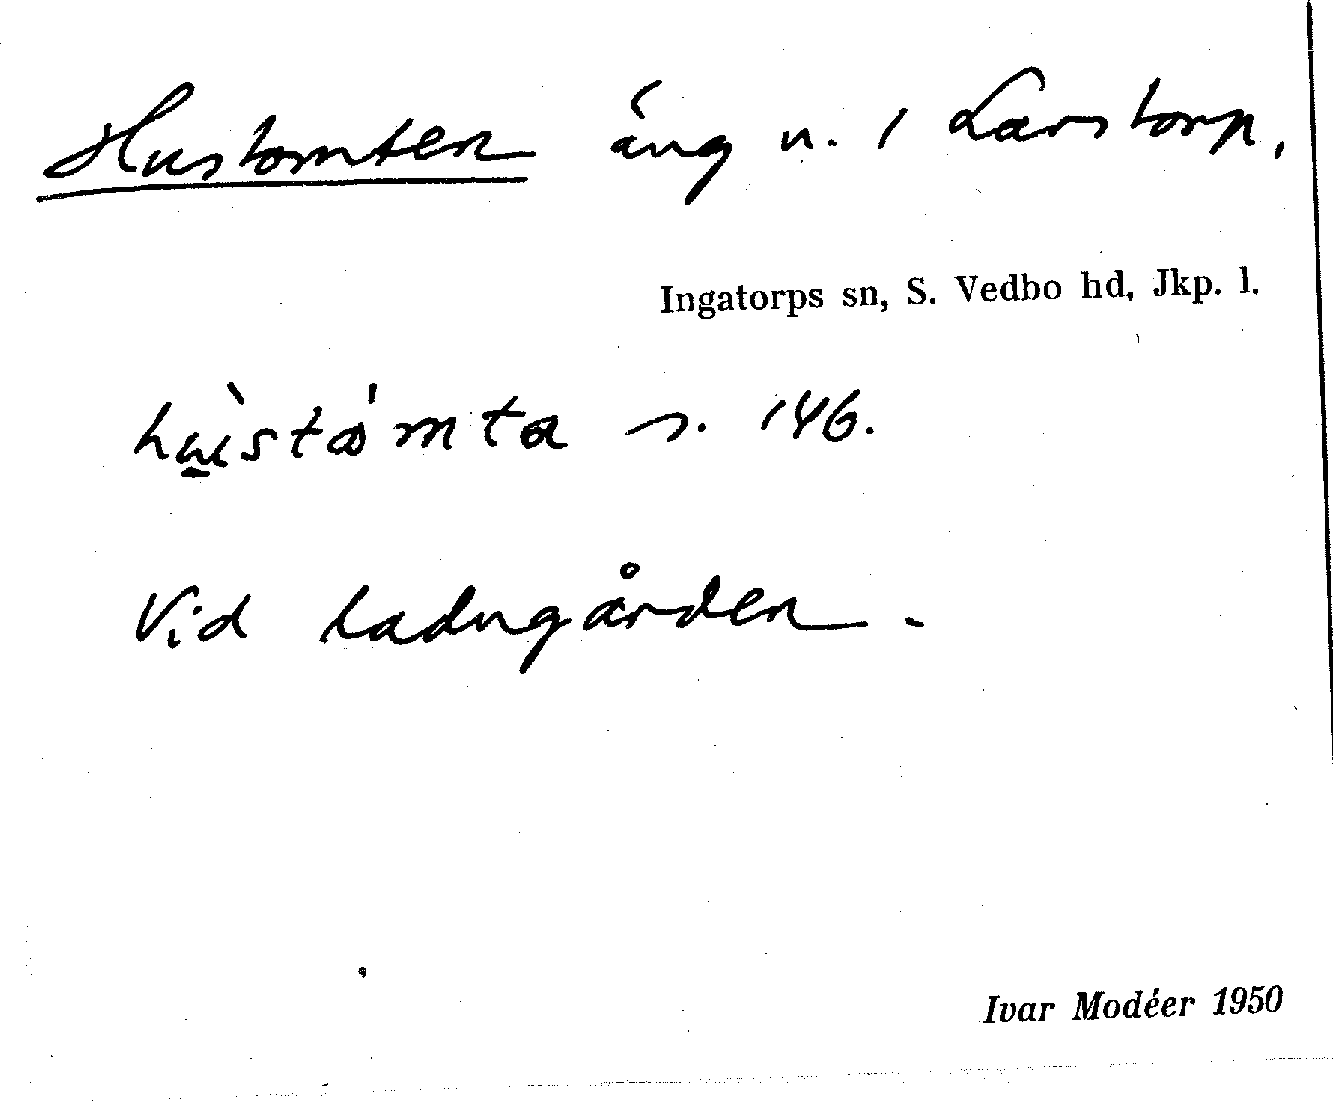 Hustomten äng u. 1 Larstorp.
Ingatorps sn, S. Vedbo hd, Jkp. l.
s. 146.
Vid ladugården.
Ivar Modéer 1950